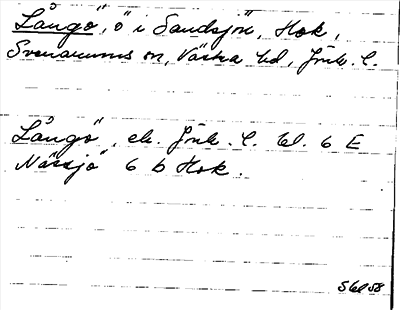 Långö, ö i Sandsjön, Hok,
Svenarums sn, Västra hd, Jönk. l.
Långö, ek. Jönk. l. bl. 6 E
Nässjö 6 b Hok.